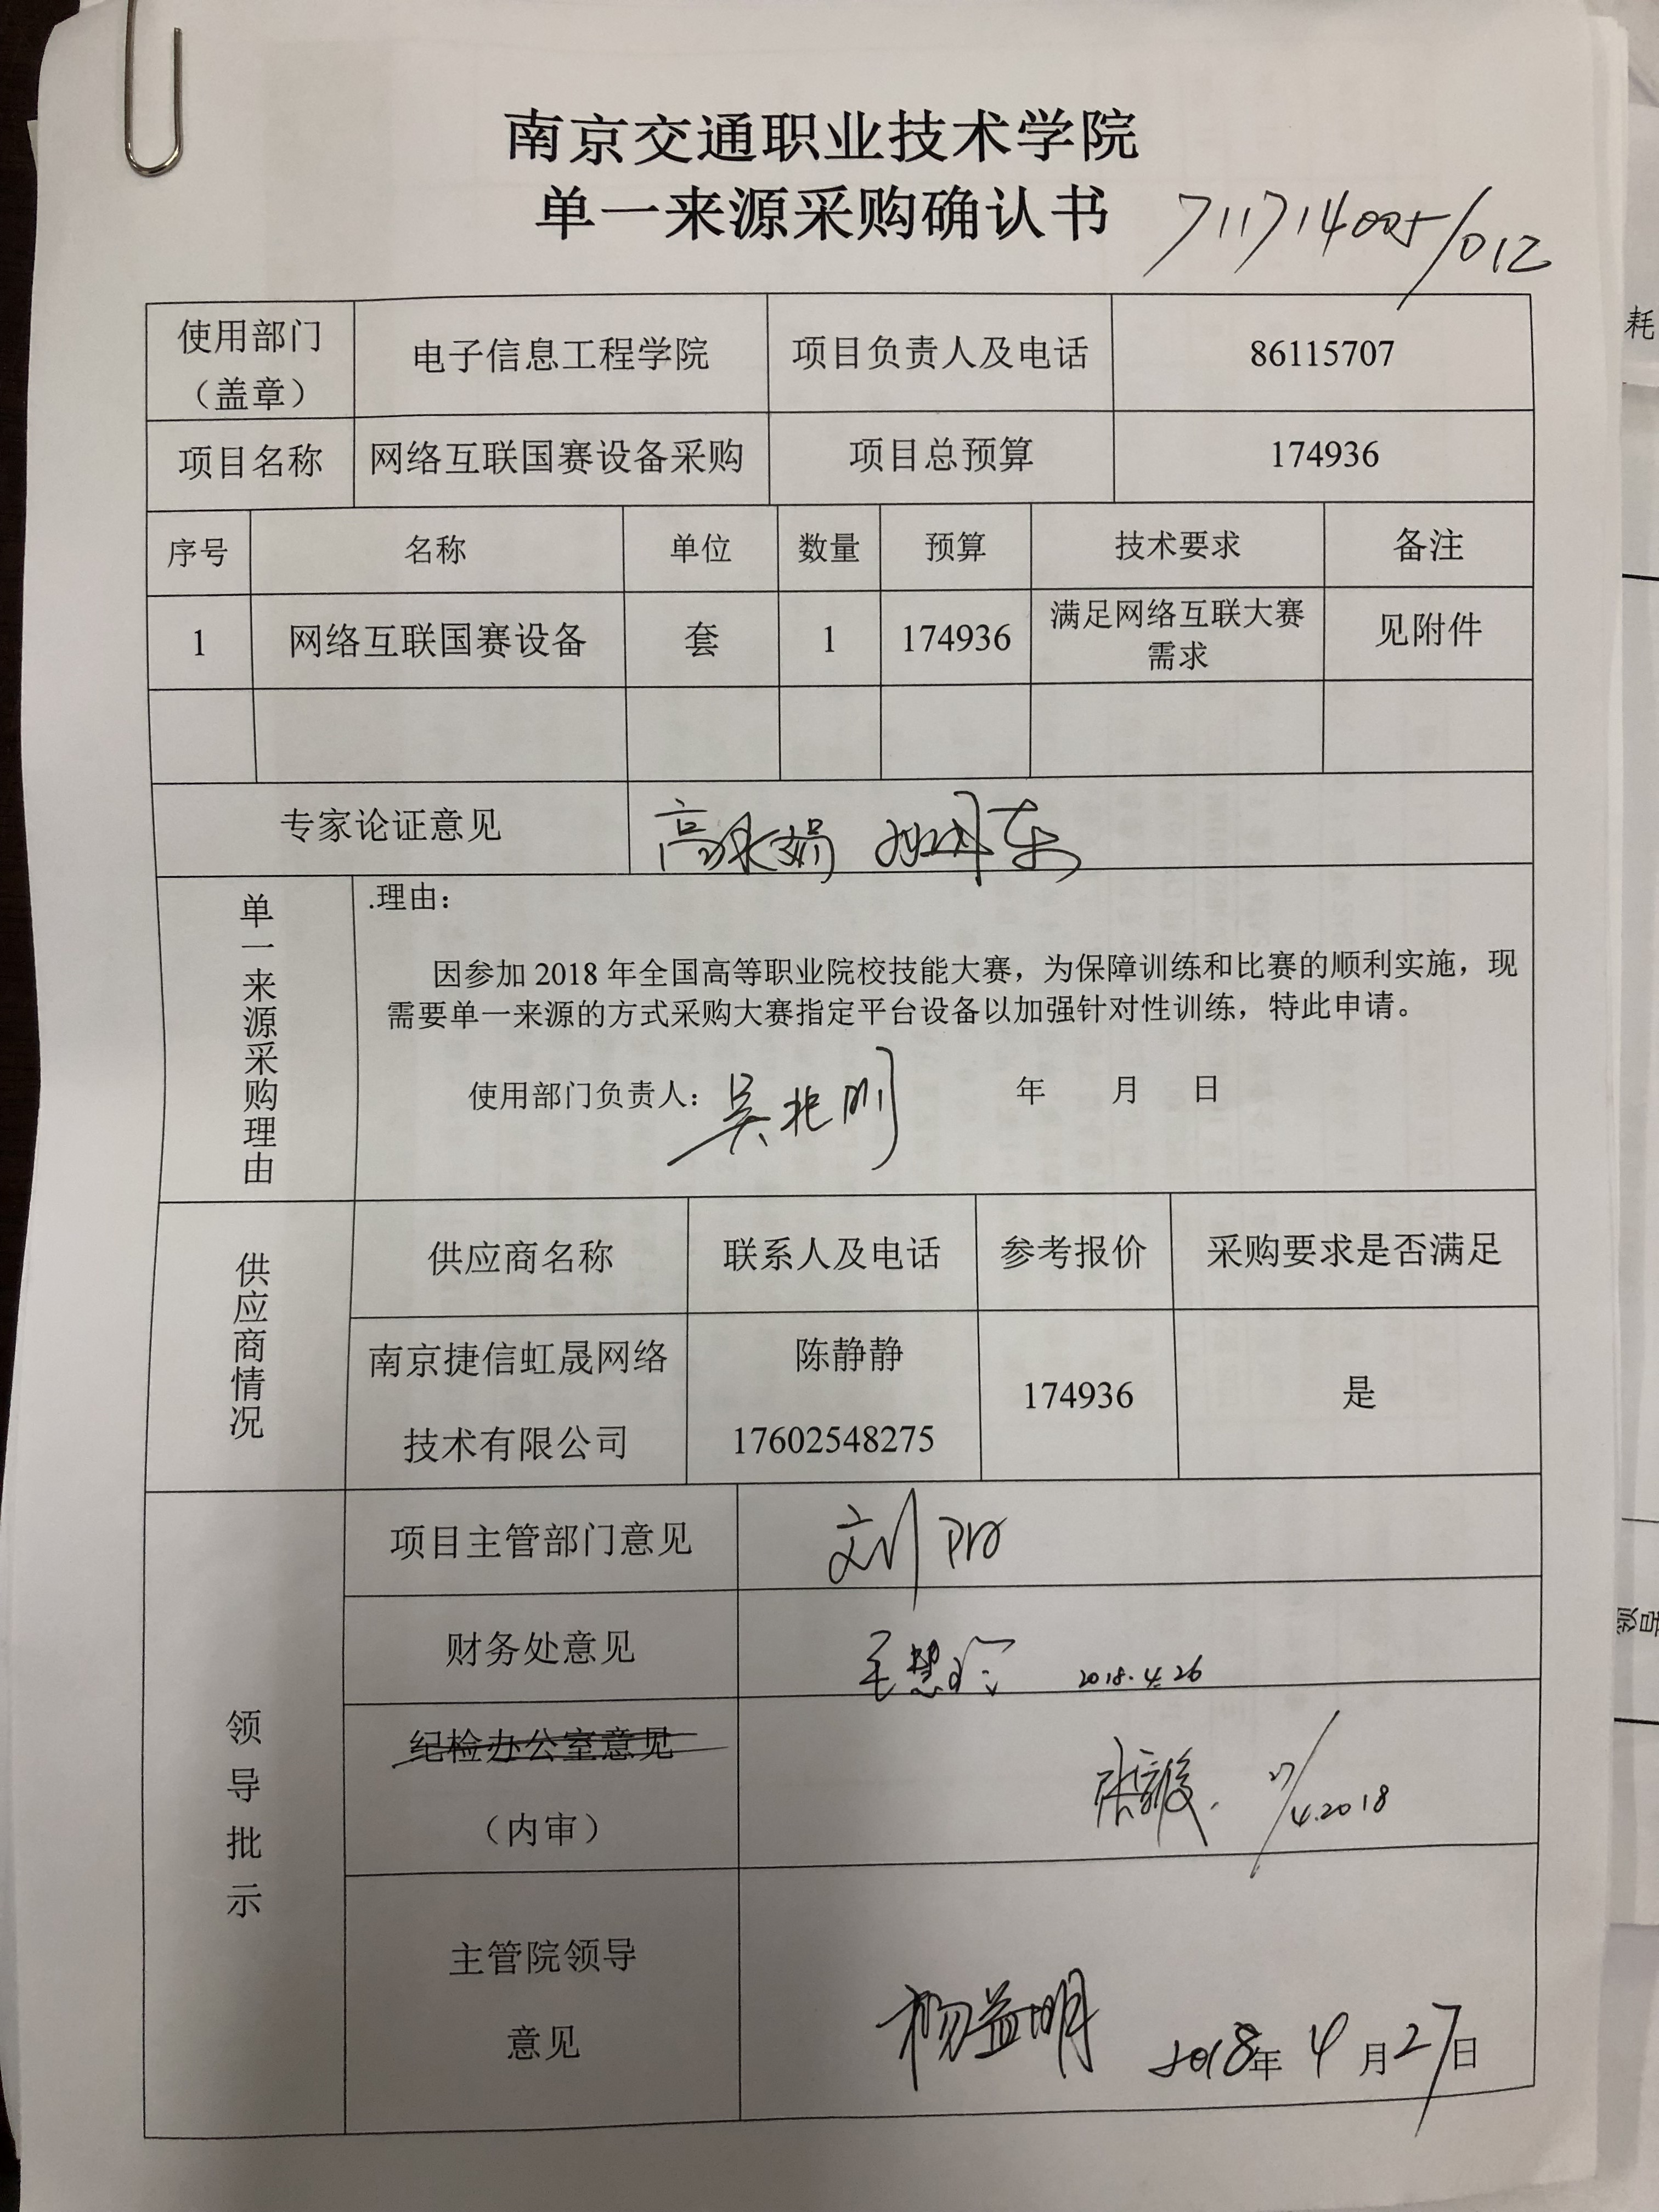 南京交通职业技术学院
单一来源采购确认书
使用部门
（盖章）
电子信息工程学院
项目负责人及电话
86115707
项目名称
网络互联国赛设备采购
项目总预算
174936
序号
名称
单位
数量
预算
技术要求
备注
1
网络互联国赛设备
套
1
174936
满足网络互联大赛
需求
见附件
专家论证意见
单一来源采购理由
.理由：
因参加 2018 年全国高等职业院校技能大赛，为保障训练和比赛的顺利实施，现
需要单一来源的方式采购大赛指定平台设备以加强针对性训练，特此申请。
使用部门负责人：吴兆明
年 月 日
供应商情况
供应商名称
联系人及电话
参考报价
采购要求是否满足
南京捷信虹晟网络
技术有限公司
陈静静
17602548275
174936
是
领导批示
项目主管部门意见
刘阳
财务处意见
2018.4.26
纪检办公室意见
（内审）
27/4.2018
主管院领导
意见
杨益明
2018年 4 月27日
耗
领导